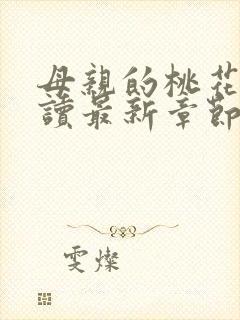 母親的桃花
讀最新章節
雯燦